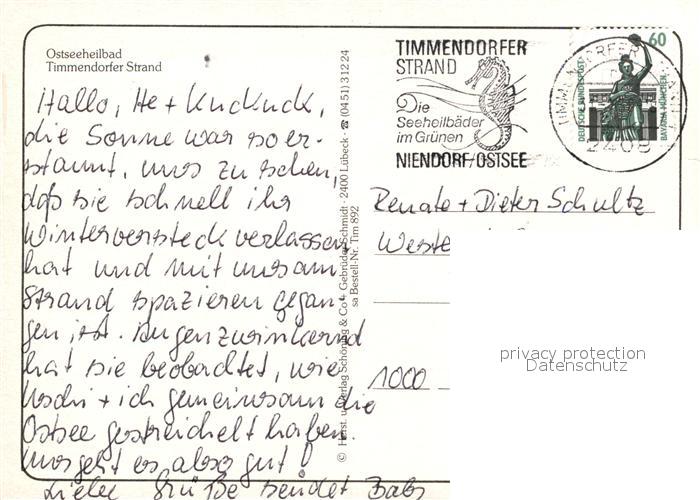 Ostseeheilbad
Timmendorfer Strand
Hallo, He + Kuckuck,
die Sonne war so er-
staunt, uns zu sehen,
daß sie schnell ihr
Winterversteck verlassen
hat und mit uns am
Strand spazieren gegan-
gen ist. Augenzwinkernd
hat sie beobachtet, wie
Uschi + ich gemeinsam die
Ostsee gestreichelt haben.
Uns geht es also gut!
Liebe Grüße sendet Babs
© Herst. u. Verlag Schöning & Co + Gebrüder Schmidt · 2400 Lübeck · ☎ (0451) 31224
sa Bestell-Nr. Tim 892
TIMMENDORFER
STRAND
Die
Seeheilbäder
im Grünen
NIENDORF/OSTSEE
2408
60
DEUTSCHE BUNDESPOST
BAVARIA MÜNCHEN
Renate + Dieter Schultz
Weste
1000
privacy protection
Datenschutz